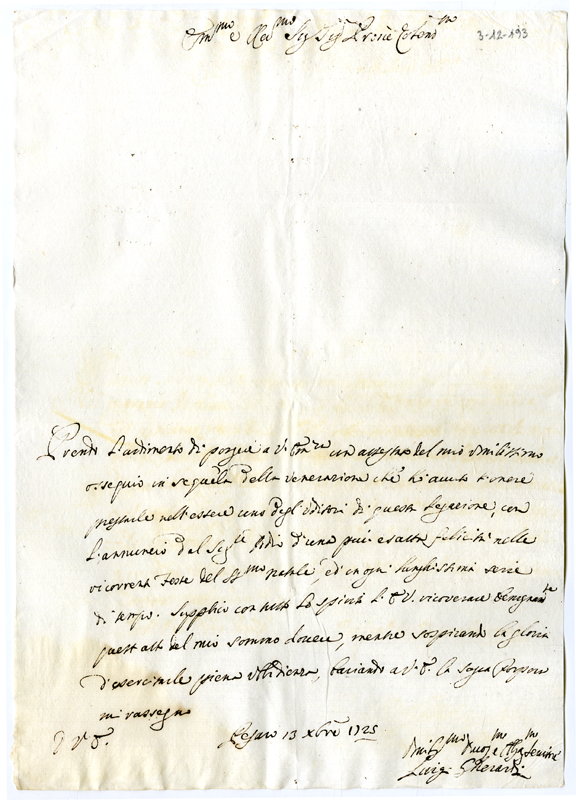 Em.mo e Rev.mo Sig. Sig. Prone Colend.mo
3-12-193
Prendo l'ardimento di porgere a V. Em.za un attestato del mio umilissimo
ossequio in sequela della venerazione che hò avuto l'onore
prestarle nell'essere uno degl'Uditori di questa Legazione, con
l'annuncio dal Sig.re Iddio d'una più esatta felicità nelle
ricorrenti Feste del SS.mo Natale, ed in ogni lunghissima serie
di tempo. Supplico con tutto lo spirito l'E.V. ricoverare benignam.te
quest'atto del mio sommo dovere, mentre sospirando la gloria
d'esercitarle piena ubidienza, baciando a V.E. la Sagra Porpora
mi rassegno
D V. E.
Pesaro 13 Xbre 1725
Umil.mo Devo.mo Obg.mo Servitore
Luigi Gherardi